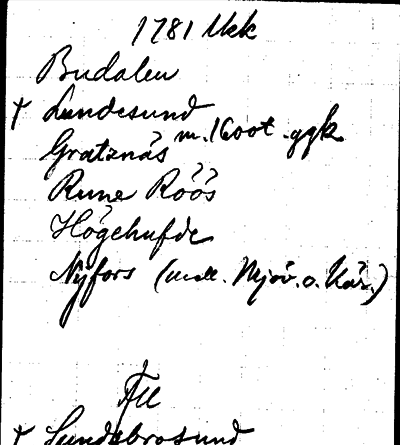 1781 Ukk
Budalen
† Lundesund
Gratznäs m. 1600t. ggk
Rune Röös
Högehufde
Nyfors (mell. Mjöv. o. Käs.)
† Lundebrosund